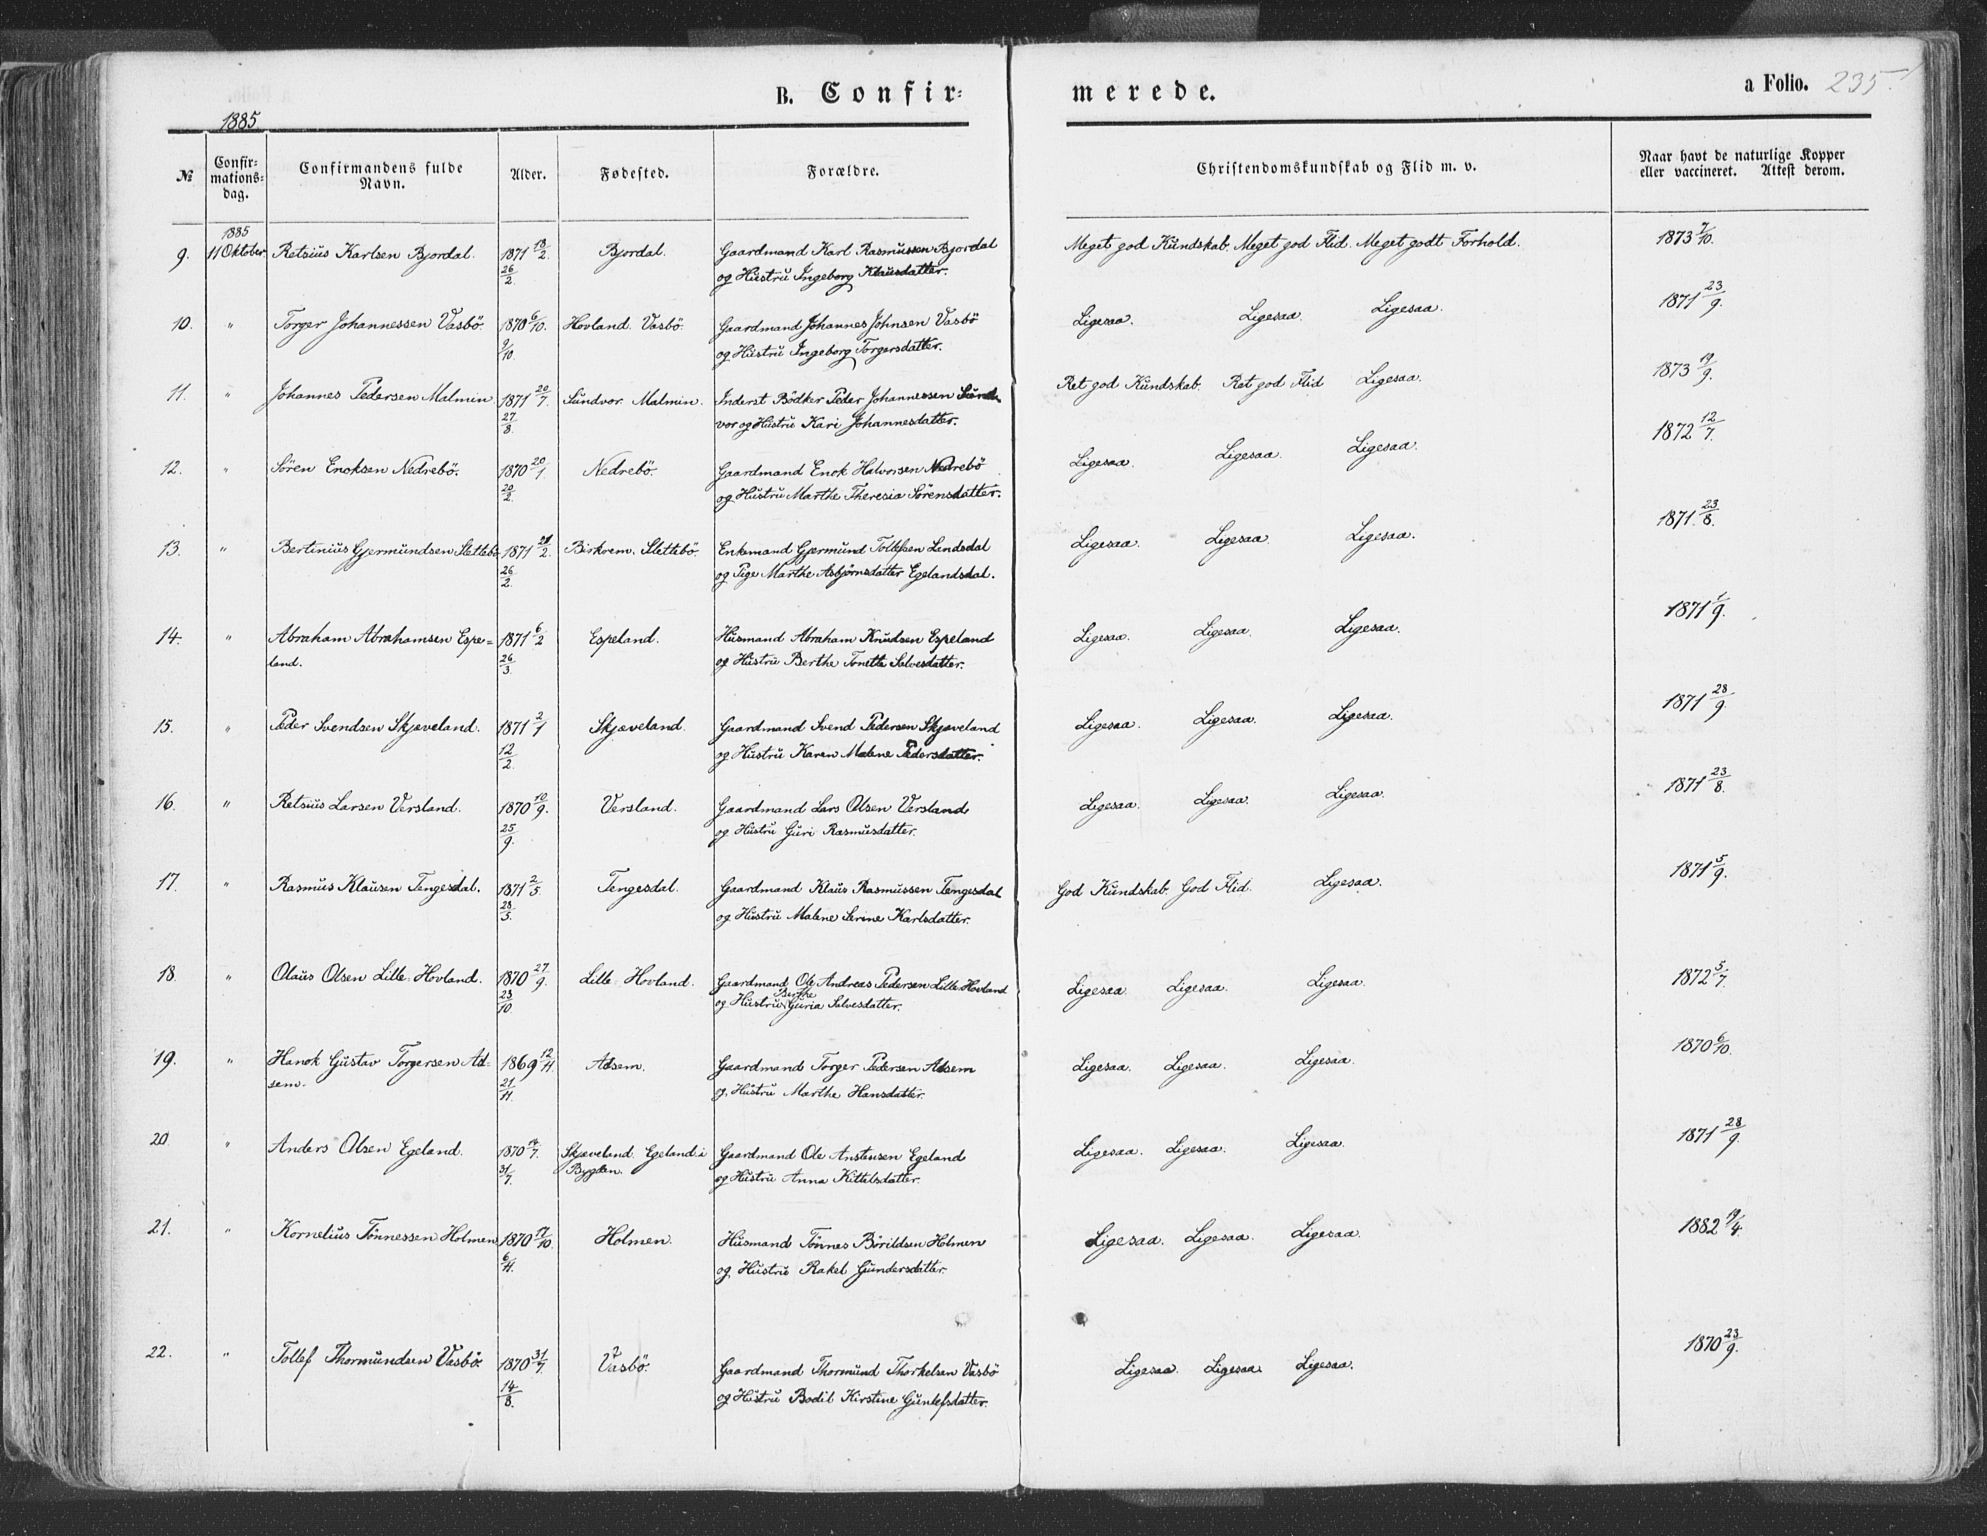 B. Confir= merede. a Folio. 235.
1885
№ Confir=mations=dag. Confirmandens fulde Navn. Alder. Fødested. Forældre. Christendomskundskab og Flid m. v. Naar havt de naturlige Kopper eller vaccineret. Attest derom.
1885
9. 11 Oktober Retsius Karlsen Bjordal. 1871 18/2. Bjordal. Gaardmand Karl Rasmussen Bjordal Meget god Kundskab. Meget god Flid. Meget godt Forhold. 1873 7/10.
26/2. og Hustru Ingeborg Klausdatter.
10. " Torger Johannessen Vasbö. 1870 6/10. Hovland. Vasbö. Gaardmand Johannes Johnsen Vasbö Ligesaa. Ligesaa. Ligesaa. 1871 23/9.
9/10. og Hustru Ingeborg Torgersdatter.
11. " Johannes Pedersen Malmin 1871 20/7. Sundvor Malmin. Inderst Bödker Peder Johannessen Sund- Ret god Kundskab. Ret god Flid Ligesaa. 1873 19/9.
27/8. vor og Hustru Kari Johannesdatter.
12. " Sören Enoksen Nedrebö. 1870 20/1 Nedrebö. Gaardmand Enok Halvorsen Nedrebö Ligesaa. Ligesaa. Ligesaa. 1872 12/7.
20/2. og Hustru Marthe Theresia Sörensdatter.
13. " Bertinius Gjermundsen Slettebö 1871 /2. Birkrem. Slettebö. Enkemand Gjermund Tollefsen Landsdal Ligesaa. Ligesaa. Ligesaa. 1871. 23/8.
26/2. og Pige Marthe Asbjörnsdatter Egelandsdal.
14. " Abraham Abrahamsen Espe= 1871 6/2 Espeland. Husmand Abraham Knudsen Espeland Ligesaa. Ligesaa. Ligesaa. 1871 1/9.
land. 26/3. og Hustru Berthe Tonette Salvesdatter.
15. " Peder Svendsen Skjæveland. 1871 2/1 Skjæveland. Gaardmand Svend Pedersen Skjæveland Ligesaa. Ligesaa. Ligesaa. 1871 28/9.
12/2. og Hustru Karen Malene Pedersdatter.
16. " Retsius Larsen Versland. 1870 10/9. Versland. Gaardmand Lars Olsen Versland Ligesaa. Ligesaa. Ligesaa. 1871 23/8.
25/9. og Hustru Guri Rasmusdatter.
17. " Rasmus Klausen Tengesdal. 1871 2/5. Tengesdal. Gaardmand Klaus Rasmussen Tengesdal God Kundskab. God Flid. Ligesaa. 1871 5/9.
28/5. og Hustru Malene Serine Karlsdatter.
18. " Olaus Olsen Lille Hovland. 1870 27/9. Lille Hovland. Gaardmand Ole Andreas Pedersen Lille Hovland Ligesaa. Ligesaa. Ligesaa. 1872 5/7.
23/10 og Hustru Berthe Guria Salvesdatter.
19. " Hanok Gustav Torgersen Ad- 1869 12/11 Adsem. Gaardmand Torger Pedersen Adsem Ligesaa. Ligesaa. Ligesaa. 1870 6/10.
sem. 21/11. og Hustru Marthe Hansdatter.
20 " Anders Olsen Egeland. 1870 14/7. Skjæveland. Egeland i Gaardmand Ole Anstensen Egeland Ligesaa. Ligesaa. Ligesaa. 1871 28/9.
31/7. Bygden. og Hustru Anna Kittelsdatter.
21. " Kornelius Tönnessen Holmen 1870 17/10. Holmen. Husmand Tönnes Börildsen Holmen Ligesaa. Ligesaa. Ligesaa. 1882 19/4.
6/11. og Hustru Rakel Gundersdatter.
22. " Tollef Thormundsen Vasbö. 1870 31/7. Vasbö. Gaardmand Thormund Thorkelsen Vasbö Ligesaa. Ligesaa. Ligesaa. 1870 23/9.
14/8. og Hustru Bodil Kirstine Gunlefsdatter.